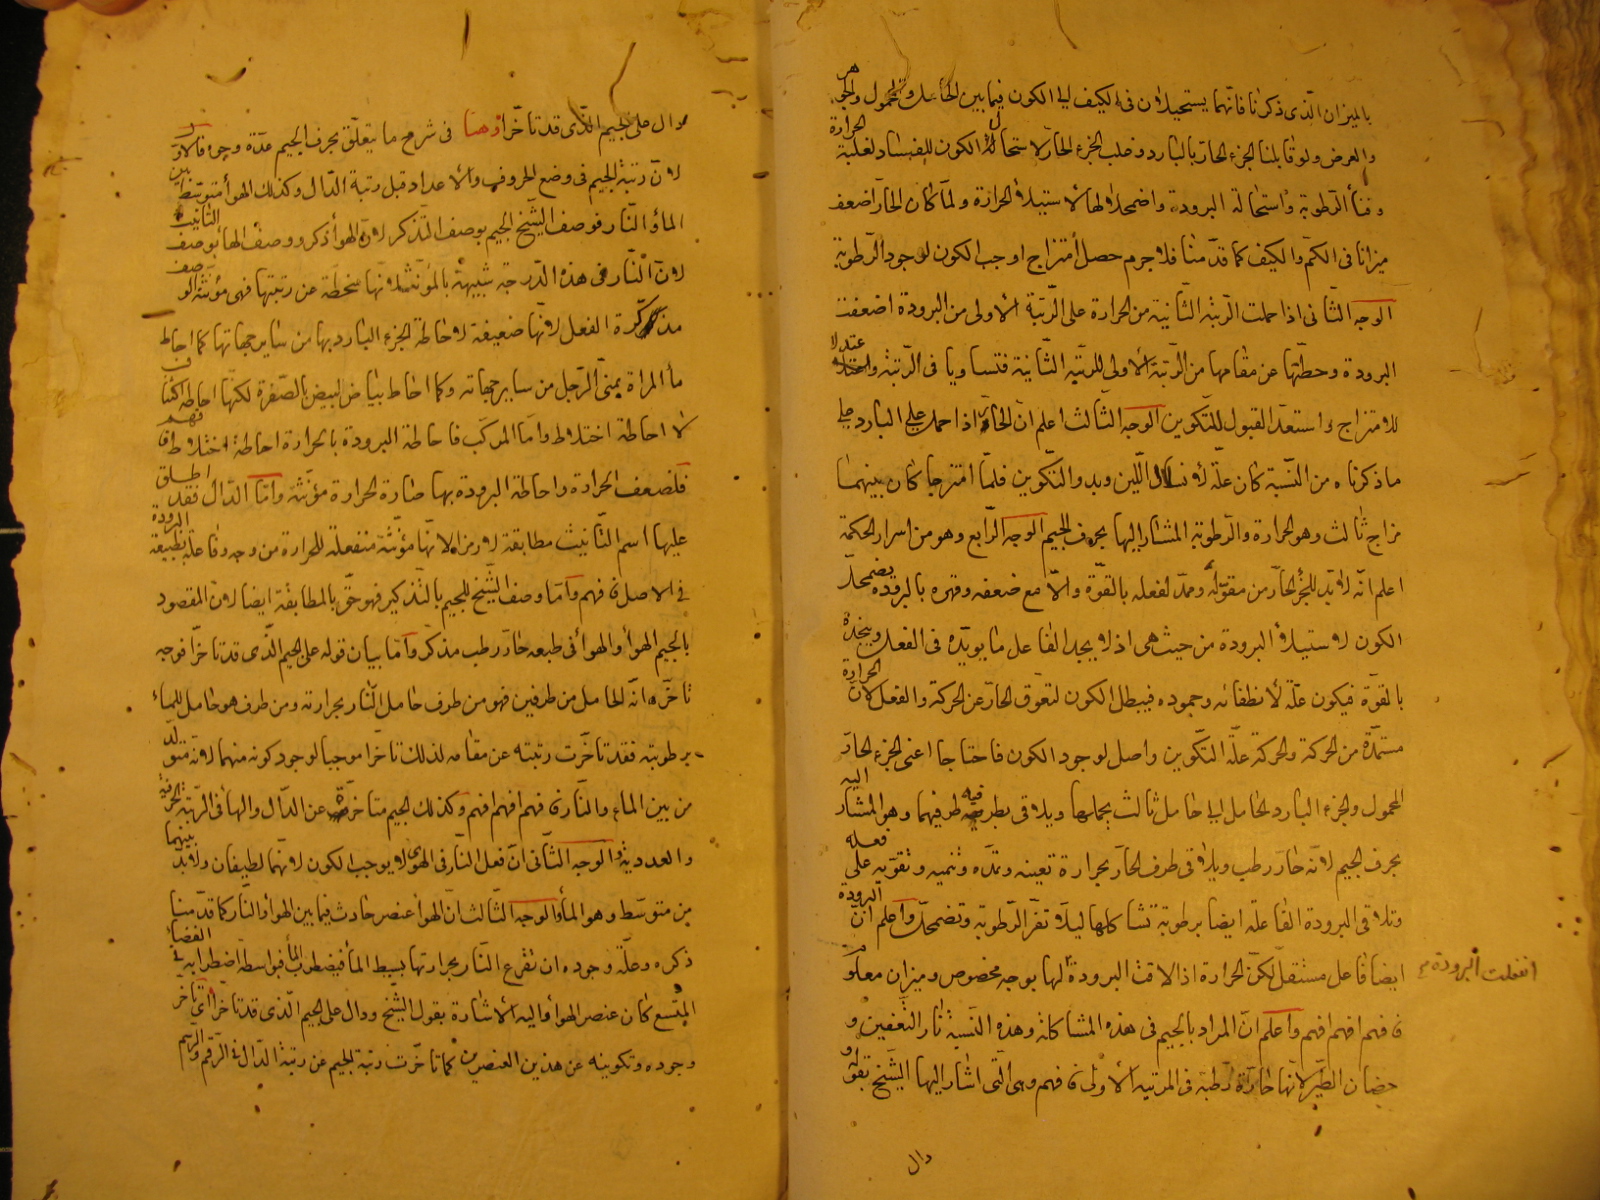 بالميزان الذى ذكرنا فانهما يستحيلان فى الكيف الى الكون فيما بين الحامل والمحمول والجوهر
والعرض ولو قابلنا الجزء الحار بالبارد وغلب الجزء الحار لاستحال الكون للفساد لغلبة الحرارة
وفنأ الرطوبة واستحالة البرودة واضمحلالها لاستيلأ الحرارة ولما كان الحار اضعف
ميزانا فى الكم والكيف كما قدمنا فلا جرم حصل أمتزاج اوجب الكون لوجود الرطوبة
الوجه الثانى اذا حملت الرتبة الثانية من الحرارة على الرتبة الأولى من البرودة اضعفت
البرودة وحطتها عن مقامها من الرتبة الأولى للرتبة الثانية فتساويا فى الرتبة واعتدلا
للامتزاج واستعد القبول للتكوين الوجه الثالث اعلم ان الحار اذا حمل على البارد على
ما ذكرناه من النسبة كان علة لانسلال اللين وبدو التكوين فلما امتزجا كان بينهما
مزاج ثالث وهو الحرارة والرطوبة المشار اليها بحرف الجيم الوجه الرابع وهو من اسرار الحكمة
اعلم انه لابد للجزء الحار من مقو له وممد لفعله بالقوة والا مع ضعفه وقهره بالبرودة يضمحل
الكون لاستيلأ البرودة من حيث هى اذ لا يجد الفاعل ما يويده فى الفعل وينجده
بالقوة فيكون علة لانطفائه وجموده فيبطل الكون لتعوق الحار عن الحركة والفعل لان الحرارة
مستمدة من الحركة والحركة علة التكوين واصل لوجود الكون فاحتاجا اعنى الجزء الحار
المحمول والجزء البارد الحامل الى حامل ثالث يحملها ويلاقى بطرفيه طرفيهما وهو المشار اليه
بحرف الجيم لانه حار رطب ويلاقى طرف الحار بحرارة تعينه وتمده وتنميه وتقويه على فعله
وتلاقى البرودة الفاعلة ايضا برطوبة تشاكلها ليلا تفر الرطوبة وتضمحل واعلم ان البرودة
ايضا فاعل مستقل لكن الحرارة اذا لاقت البرودة لها بوجه مخصوص وميزان معلوم
انفعلت البرودة
فافهم افهم افهم واعلم ان المراد بالجيم فى هذه المشاكلة وهذه النسبة نار التعفين و
حضان الطير لانها حارة رطبة فى المرتبة الأولى فافهم وهى التى اشار اليها الشيخ بقوله و
دال
ودال على الجيم الذى قد تاخرا وهنا فى شرح ما يتعلق بحرف الجيم عدة وجوه فالاول
لان رتبة الجيم فى وضع الحروف والاعداد قبل رتبة الدال وكذلك الهوأ متوسط بين
المأ والنار فوصف الشيخ الجيم بوصف التذكير لان الهوأ ذكر ووصف الها بوصف التانيث
لان النار فى هذه الدرجة شبيهة بالمؤنث لانها منحطة عن رتبتها فهى مؤنثة الوصف
مذكرة الفعل لانها ضعيفة لاحاطة الجزء البارد بها من ساير جهاتها كما احاط
مأ المراة بمنى الرجل من ساير جهاته وكما احاط بياض البيض بالصفرة لكنها احاطة اكتناف
لا احاطة اختلاط واما المركب فاحاطة البرودة بالحرارة احاطة اختلاط فافهم
فلضعف الحرارة واحاطة البرودة بها صارة الحرارة مؤنثة واما الدال فقد اطلق
عليها اسم التانيث مطابقة لرمزه لانها مؤنثة منفعلة للحرارة من وجه وفاعلة بطبيعة البرودة
فى الاصل فافهم واما وصف الشيخ للجيم بالتذكير فهو حق بالمطابقة ايضا لان المقصود
بالجيم الهوأ والهوأ فى طبعه حار رطب مذكر واما بيان قوله على الجيم الذى قد تاخرا فوجه
تاخره انه الحامل من طرفين فهو من طرف حامل النار بحرارته ومن طرف هو حامل للماء
برطوبته فقد تاخرت رتبته عن مقامه لذلك تاخرا موجبا لوجود كونه منهما لانه متولد
من بين الماء والنار فافهم افهم افهم وكذلك الجيم متاخرة عن الدال والهأ فى الرتبة الحرفية
والعددية الوجه الثانى ان فعل النار فى الهوى لا يوجب الكون لانهما لطيفان ولابد بينهما
من متوسط وهو المأ والوجه الثالث ان الهوأ عنصر حادث فيما بين الهوأ والنار كما قدمنا
ذكره وعلة وجوده ان تقرع النار بحرارتها بسيط المأ فيضطرب المأ فبواسطة اضطرابه فى الفضأ
المتسع كان عنصر الهوأ واليه الاشارة بقول الشيخ ودال على الجيم الذى قد تاخرا اى تاخر
وجوده وتكوينه عن هذين العنصرين كما تاخرت رتبة الجيم عن رتبة الدال فى الرقم والرسم